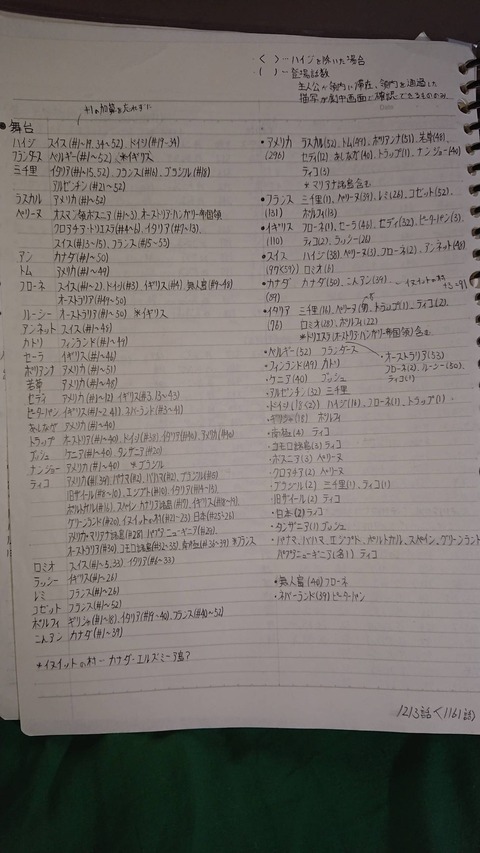 < ) … ハイジを除いた場合
( ) … 登場話数
主人公が領内に滞在、領内を通過した
描写が劇中画面で確認できるもののみ
Date
+1の加算を忘れずに
● 舞台
ハイジ スイス(#1~19, 34~52), ドイツ(#19~34)
フランダース ベルギー(#1~52) *イギリス
三千里 イタリア(#1~15, 52), フランス(#16), ブラジル(#18)
アルゼンチン(#21~52)
ラスカル アメリカ(#1~52)
ペリーヌ オスマン領ボスニア(#1~3) オーストリア・ハンガリー帝国領
クロアチア・トリエステ(#4~6), イタリア(#7~13)
スイス(#13~15), フランス(#15~53)
アン カナダ(#1~50)
トム アメリカ(#1~49)
フローネ スイス(#1~2), ドイツ(#3), イギリス(#4), 無人島(#9~48)
オーストラリア(#49~50)
ルーシー オーストラリア(#1~50) *イギリス
アンネット スイス(#1~48)
カトリ フィンランド(#1~49)
セーラ イギリス(#1~46)
ポリアンナ アメリカ(#1~51)
若草 アメリカ(#1~48)
セディ アメリカ(#1~12), イギリス(#13~43)
ピーターパン イギリス(#1~2, 41), ネバーランド(#3~41)
あしなが アメリカ(#1~40)
トラップ オーストリア(#1~40), ドイツ(#38), イタリア(#40), アメリカ(#40)
ブッシュ ケニア(#1~40), タンザニア(#20)
ナンジョー アメリカ(#1~40) *ブラジル
ティコ アメリカ(#1, 39), パナマ(#2), バハマ(#2), ブラジル(#5)
旧ザイール(#8~10), エジプト(#10), イタリア(#14~15)
ポルトガル(#16), スペイン カナリア諸島(#17), イギリス(#18~19)
グリーンランド(#20), イヌイットの村(#21~23), 日本(#25~26)
アメリカ・マリアナ諸島(#28), パプアニューギニア(#29)
オーストラリア(#30), コモロ諸島(#32~35), 南極(#36~39) *フランス
ロミオ スイス(#1~5, 33), イタリア(#6~33)
ラッシー イギリス(#1~26)
レミ フランス(#1~26)
コゼット フランス(#1~52)
ポルフィ ギリシャ(#1~18), イタリア(#19~40), フランス(#40~52)
こんアン カナダ(#1~39)
*イヌイットの村…カナダ・エルズミーア島?
● アメリカ ラスカル(52), トム(49), ポリアンナ(51), 若草(48)
(296) セディ(12), あしなが(40), トラップ(1), ナンジョー(40)
ティコ(3)
*マリアナ諸島含む
● フランス 三千里(1), ペリーヌ(39), レミ(26), コゼット(52),
(131) ポルフィ(13)
● イギリス フローネ(1), セーラ(46), セディ(32), ピーターパン(3)
(110) ティコ(2), ラッシー(26)
● スイス ハイジ(38), ペリーヌ(3), フローネ(2), アンネット(48)
(97<59>) ロミオ(6)
● カナダ カナダ(50), こんアン(39)
(89)
● イタリア 三千里(16), ペリーヌ(7), トラップ(1), ティコ(2),
(76) ロミオ(28), ポルフィ(22)
*トリエステ(オーストリア・ハンガリー帝国領)含む
● ベルギー(52) フランダース
● オーストラリア(53)
フローネ(2), ルーシー(50),
ティコ(1)
● フィンランド(49) カトリ
● ケニア(40) ブッシュ
● アルゼンチン(32) 三千里
● ギリシャ(18) ポルフィ
● 南極(4) ティコ
● コモロ諸島(3) ティコ
● ボスニア(3) ペリーヌ
● クロアチア(2) ペリーヌ
● ブラジル(2) 三千里(1), ティコ(1)
● 旧ザイール(2) ティコ
● 日本(2)
● タンザニア(1) ブッシュ
● パナマ, バハマ, エジプト, ポルトガル, スペイン, グリーンランド
パプアニューギニア(各1) ティコ
● 無人島(40) フローネ
● ネバーランド(39) ピーターパン
1213話<1161話>